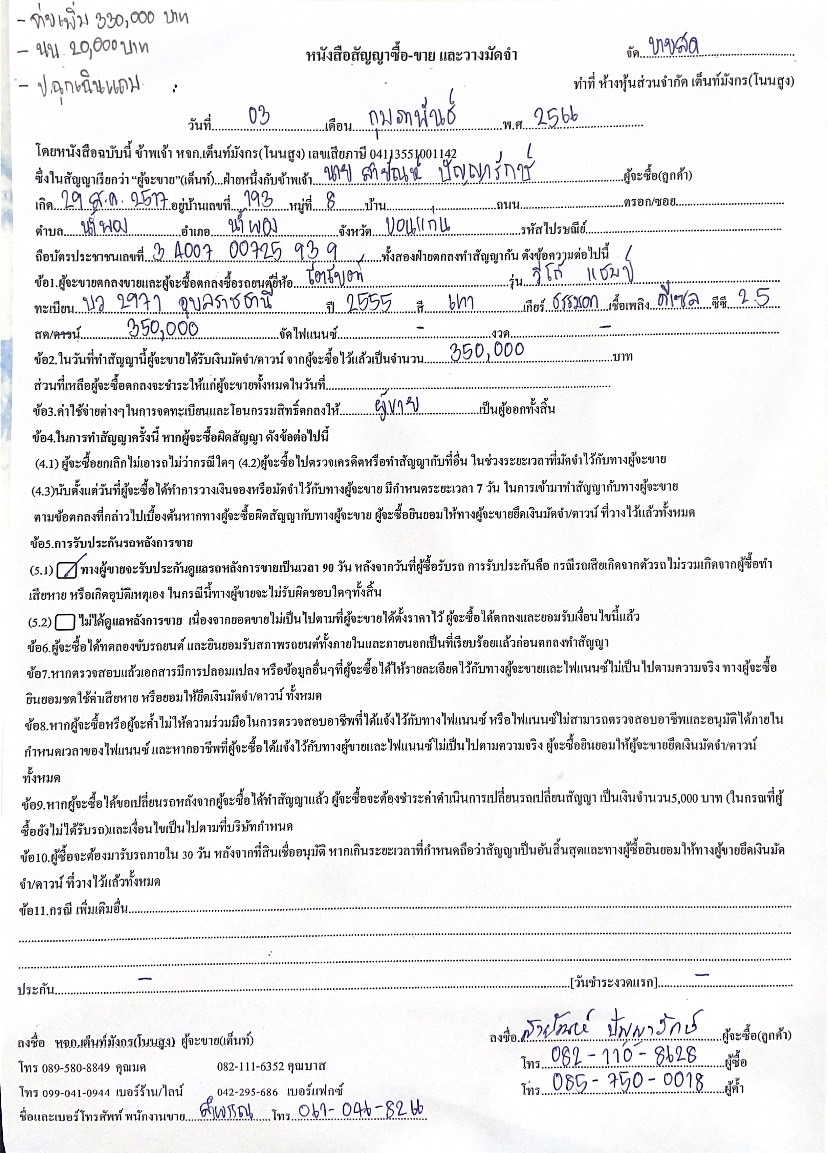 - จ่ายเพิ่ม 330,000 บาท
- นน 20,000 บาท
- ป.ฉุกเฉินแถม
หนังสือสัญญาซื้อ-ขาย และวางมัดจำ
จัด ขายสด
ทำที่ ห้างหุ้นส่วนจำกัด เต็นท์มังกร(โนนสูง)
วันที่ 03 เดือน กุมภาพันธ์ พ.ศ. 2566
โดยหนังสือฉบับนี้ ข้าพเจ้า หจก.เต็นท์มังกร(โนนสูง) เลขเสียภาษี 04113551001142
ซึ่งในสัญญาเรียกว่า "ผู้จะขาย"(เต็นท์)...ฝ่ายหนึ่งกับข้าพเจ้า นาย สายัณห์ ปัญญารักษ์ ผู้จะซื้อ(ลูกค้า)
เกิด 29 ส.ค. 2517 อยู่บ้านเลขที่ 193 หมู่ที่ 8 บ้าน ถนน ตรอก/ซอย
ตำบล น้ำพอง อำเภอ น้ำพอง จังหวัด ขอนแก่น รหัสไปรษณีย์
ถือบัตรประชาชนเลขที่ 3 4007 00725 93 9 ทั้งสองฝ่ายตกลงทำสัญญากัน ดังข้อความต่อไปนี้
ข้อ1.ผู้จะขายตกลงขายและผู้จะซื้อตกลงซื้อรถยนต์ยี่ห้อ โตโยต้า รุ่น วีโก้ แชมป์
ทะเบียน บว 2971 อุบลราชธานี ปี 2555 สี เทา เกียร์ ธรรมดา เชื้อเพลิง ดีเซล ซีซี 2.5
สด/ดาวน์ 350,000 จัดไฟแนนซ์ - งวด -
ข้อ2.ในวันที่ทำสัญญานี้ผู้จะขายได้รับเงินมัดจำ/ดาวน์ จากผู้จะซื้อไว้แล้วเป็นจำนวน 350,000 บาท
ส่วนที่เหลือผู้จะซื้อตกลงจะชำระให้แก่ผู้จะขายทั้งหมดในวันที่
ข้อ3.ค่าใช้จ่ายต่างๆในการจดทะเบียนและโอนกรรมสิทธิ์ตกลงให้ ผู้ขาย เป็นผู้ออกทั้งสิ้น
ข้อ4.ในการทำสัญญาครั้งนี้ หากผู้จะซื้อผิดสัญญา ดังข้อต่อไปนี้
(4.1) ผู้จะซื้อยกเลิกไม่เอารถไม่ว่ากรณีใดๆ (4.2)ผู้จะซื้อไปตรวจเครดิตหรือทำสัญญากับที่อื่น ในช่วงระยะเวลาที่มัดจำไว้กับทางผู้จะขาย
(4.3)นับตั้งแต่วันที่ผู้จะซื้อได้ทำการวางเงินจองหรือมัดจำไว้กับทางผู้จะขาย มีกำหนดระยะเวลา 7 วัน ในการเข้ามาทำสัญญากับทางผู้จะขาย
ตามข้อตกลงที่กล่าวไปเบื้องต้นหากทางผู้จะซื้อผิดสัญญากับทางผู้จะขาย ผู้จะซื้อยินยอมให้ทางผู้จะขายยึดเงินมัดจำ/ดาวน์ ที่วางไว้แล้วทั้งหมด
ข้อ5.การรับประกันรถหลังการขาย
(5.1) ทางผู้ขายจะรับประกันดูแลรถหลังการขายเป็นเวลา 90 วัน หลังจากวันที่ผู้ซื้อรับรถ การรับประกันคือ กรณีรถเสียเกิดจากตัวรถไม่รวมเกิดจากผู้ซื้อทำ
เสียหาย หรือเกิดอุบัติเหตุเอง ในกรณีนี้ทางผู้ขายจะไม่รับผิดชอบใดๆทั้งสิ้น
(5.2) ไม่ได้ดูแลหลังการขาย เนื่องจากยอดขายไม่เป็นไปตามที่ผู้จะขายได้ตั้งราคาไว้ ผู้จะซื้อได้ตกลงและยอมรับเงื่อนไขนี้แล้ว
ข้อ6.ผู้จะซื้อได้ทดลองขับรถยนต์ และยินยอมรับสภาพรถยนต์ทั้งภายในและภายนอกเป็นที่เรียบร้อยแล้วก่อนตกลงทำสัญญา
ข้อ7.หากตรวจสอบแล้วเอกสารมีการปลอมแปลง หรือข้อมูลอื่นๆที่ผู้จะซื้อได้ให้รายละเอียดไว้กับทางผู้จะขายและไฟแนนซ์ไม่เป็นไปตามความจริง ทางผู้จะซื้อ
ยินยอมชดใช้ค่าเสียหาย หรือยอมให้ยึดเงินมัดจำ/ดาวน์ ทั้งหมด
ข้อ8.หากผู้จะซื้อหรือผู้จะค้ำไม่ให้ความร่วมมือในการตรวจสอบอาชีพที่ได้แจ้งไว้กับทางไฟแนนซ์ หรือไฟแนนซ์ไม่สามารถตรวจสอบอาชีพและอนุมัติได้ภายใน
กำหนดเวลาของไฟแนนซ์ และหากอาชีพที่ผู้จะซื้อได้แจ้งไว้กับทางผู้ขายและไฟแนนซ์ไม่เป็นไปตามความจริง ผู้จะซื้อยินยอมให้ผู้จะขายยึดเงินมัดจำ/ดาวน์
ทั้งหมด
ข้อ9.หากผู้จะซื้อได้ขอเปลี่ยนรถหลังจากผู้จะซื้อได้ทำสัญญาแล้ว ผู้จะซื้อจะต้องชำระค่าดำเนินการเปลี่ยนรถเปลี่ยนสัญญา เป็นเงินจำนวน5,000 บาท (ในกรณีที่ผู้
ซื้อยังไม่ได้รับรถ)และเงื่อนไขเป็นไปตามที่บริษัทกำหนด
ข้อ10.ผู้ซื้อจะต้องมารับรถภายใน 30 วัน หลังจากที่สินเชื่ออนุมัติ หากเกินระยะเวลาที่กำหนดถือว่าสัญญาเป็นอันสิ้นสุดและทางผู้ซื้อยินยอมให้ทางผู้ขายยึดเงินมัด
จำ/ดาวน์ ที่วางไว้แล้วทั้งหมด
ข้อ11.กรณี เพิ่มเติมอื่น
ประกัน - [วันชำระงวดแรก] -
ลงชื่อ หจก.เต็นท์มังกร(โนนสูง) ผู้จะขาย(เต็นท์)
ลงชื่อ สายัณห์ ปัญญารักษ์ ผู้จะซื้อ(ลูกค้า)
โทร 089-580-8849 คุณมด 082-111-6352 คุณบาส
โทร 082-110-8628 ผู้ซื้อ
โทร 099-041-0944 เบอร์ร้าน/ไลน์ 042-295-686 เบอร์แฟกซ์
โทร 085-750-0018 ผู้ค้ำ
ชื่อและเบอร์โทรศัพท์ พนักงานขาย โทร 061-046-8266